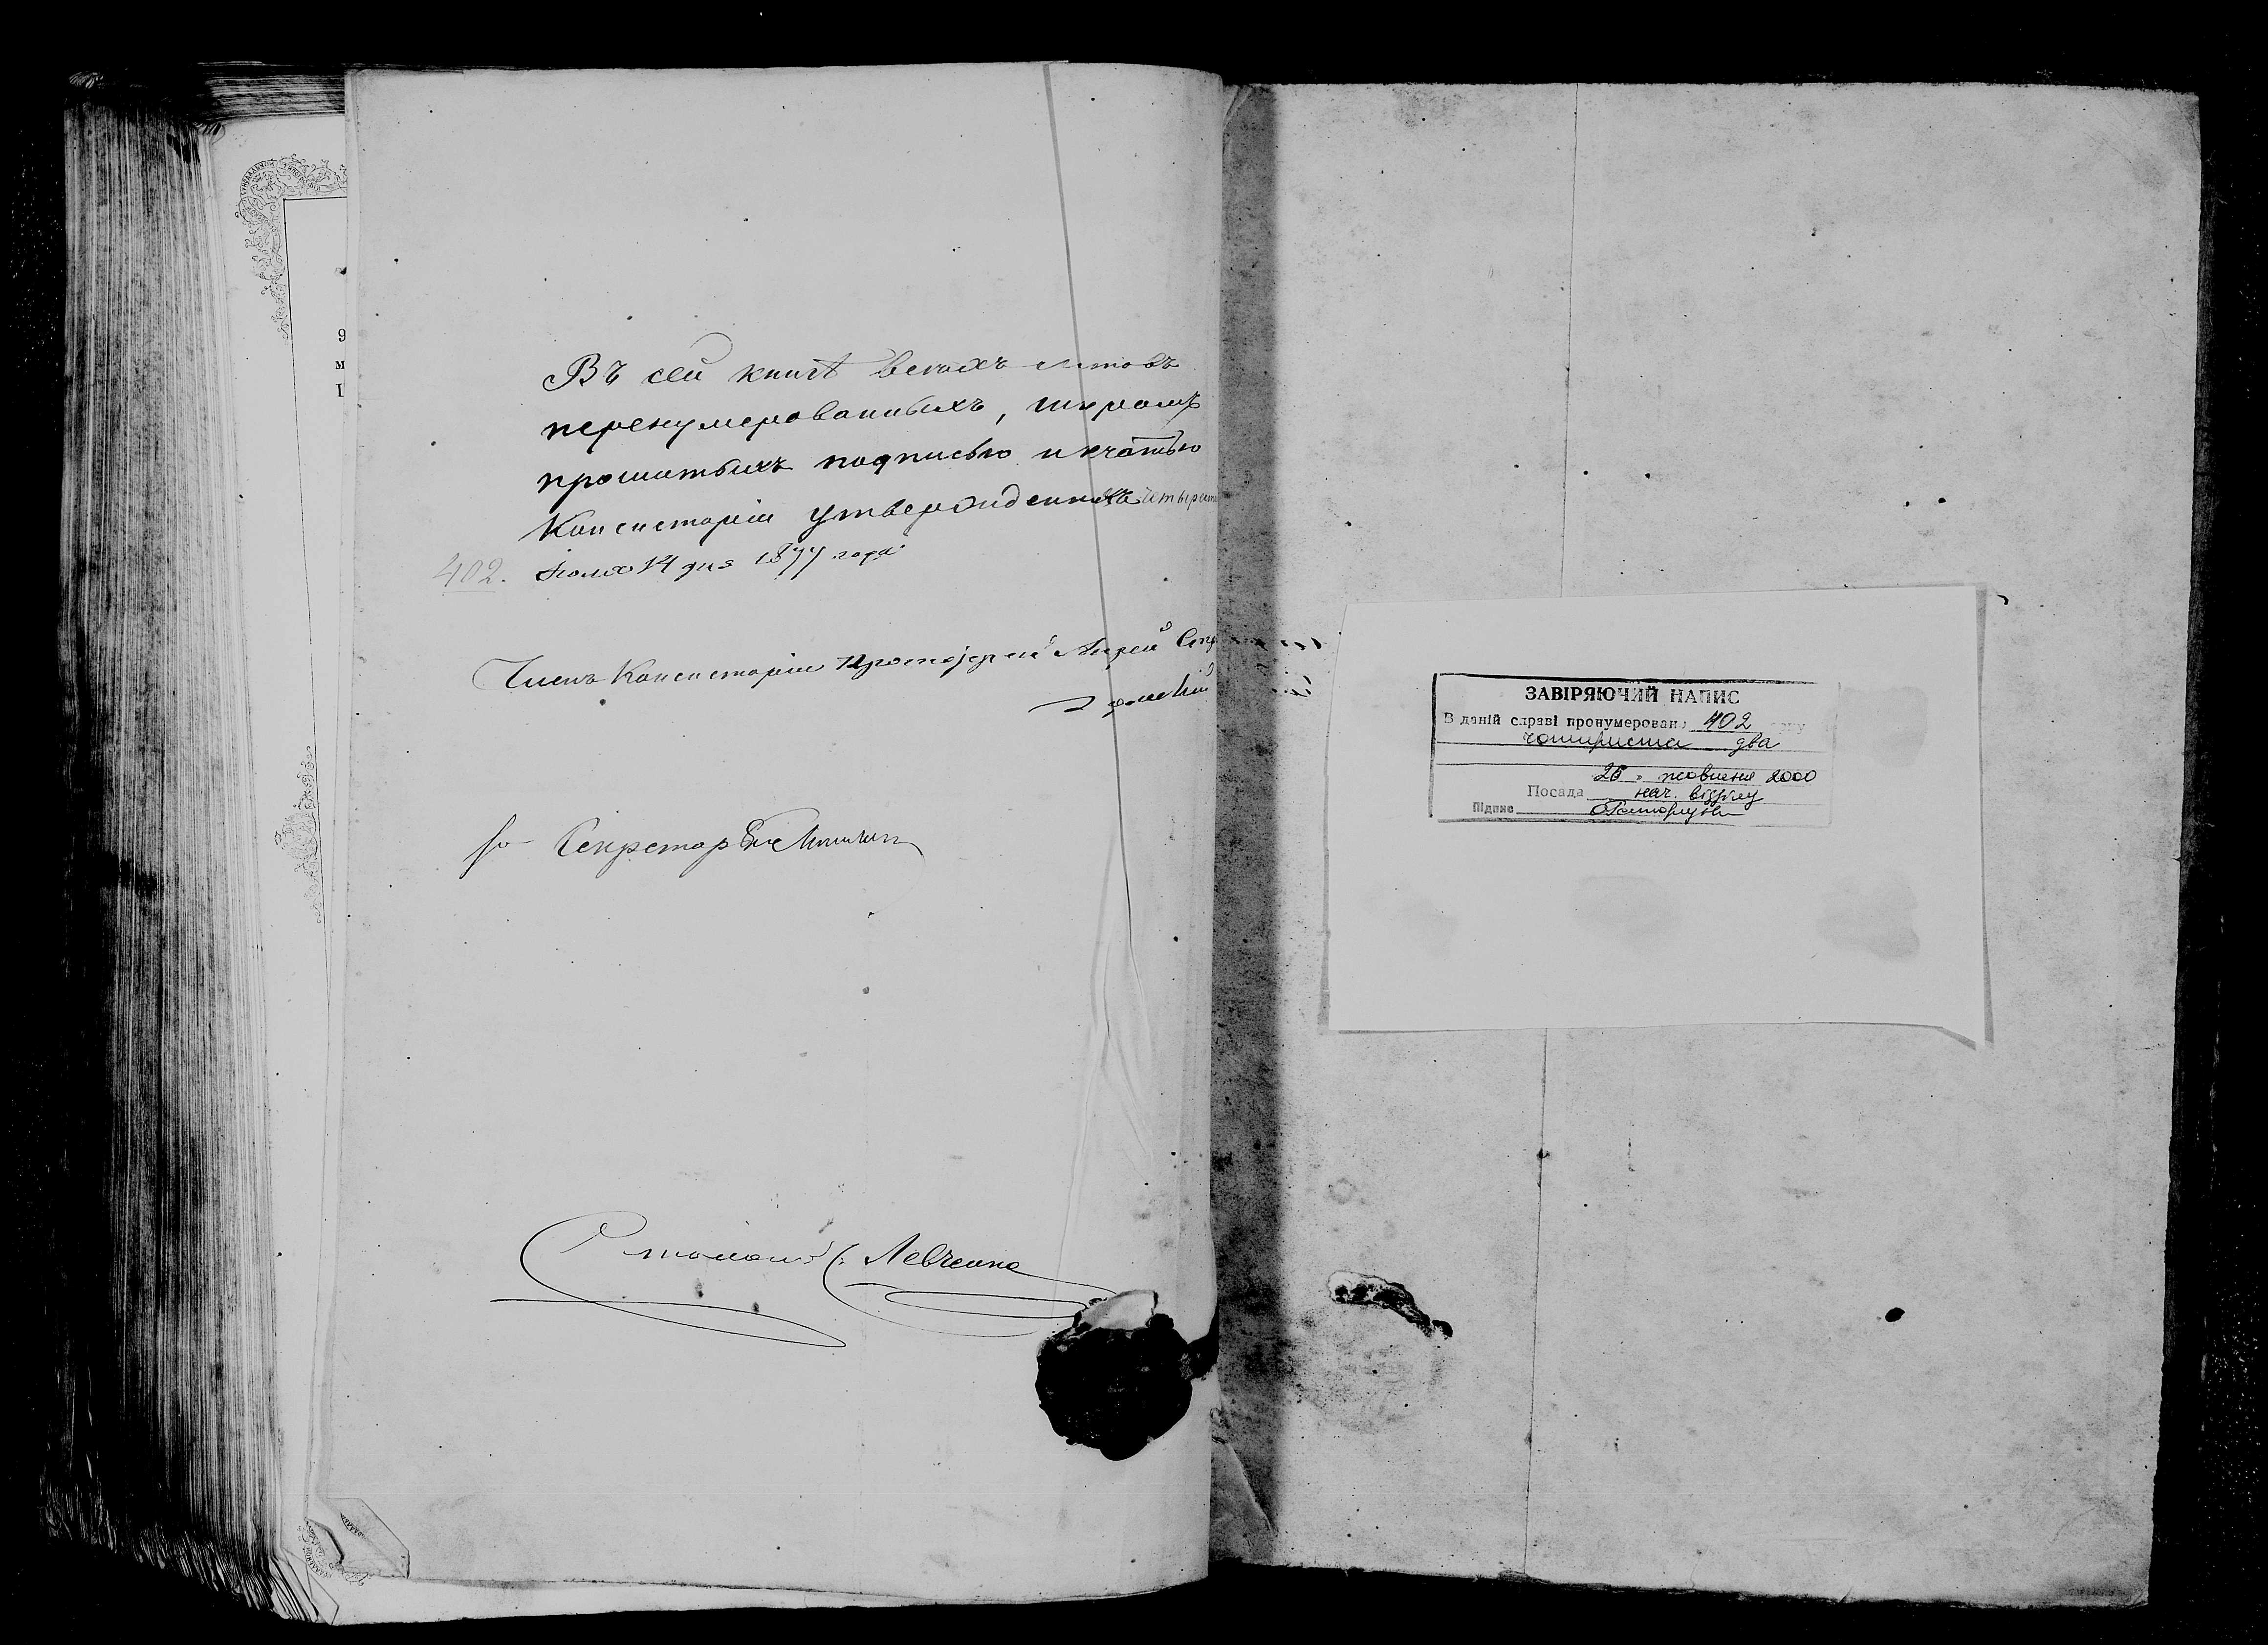 Въ сей книгѣ всѣхъ листовъ
перенумерованныхъ, шнуромъ
прошитыхъ подписью и кчатью
Консисторіи утвержденныхъ четыреста
402. Іюля 14 дня 1877 года
Членъ Консисторіи Протоіерей Андрей
Секретарь
Столонач. Левченко
ЗАВІРЯЮЧИЙ НАПИС
В даній справі пронумеровано 402
чотириста два
26 жовтня 2000
Посада нач. відділу
Підпис